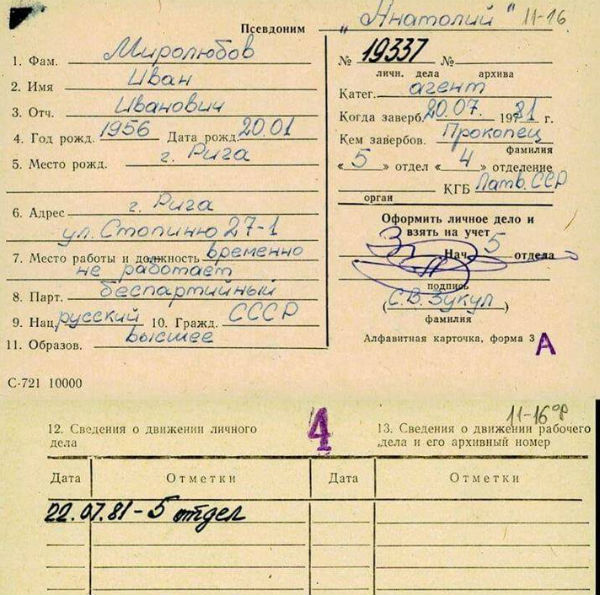 Псевдоним „Анатолий" 11-16
1. Фам. Миролюбов
2. Имя Иван
3. Отч. Иванович
4. Год рожд. 1956 Дата рожд. 20.01
5. Место рожд. г. Рига
6. Адрес г. Рига
ул. Стопиню 27-1
7. Место работы и должность временно
не работает
8. Парт. беспартийный
9. Нац. русский 10. Гражд. СССР
11. Образов. высшее
С-721 10000
№ 19337 №
личн. дела архива
Катег. агент
Когда заверб. 20.07. 1981 г.
Кем завербов. Прокопец
фамилия
« 5 » отдел « 4 » отделение
КГБ Латв. ССР
орган
Оформить личное дело и
взять на учет
Нач. 5 отдела
подпись
(С.В. Зукул)
фамилия
Алфавитная карточка, форма 3
А
11-16 ор
12. Сведения о движении личного
дела
4
13. Сведения о движении рабочего
дела и его архивный номер
Дата Отметки Дата Отметки
22.07.81 - 5 отдел